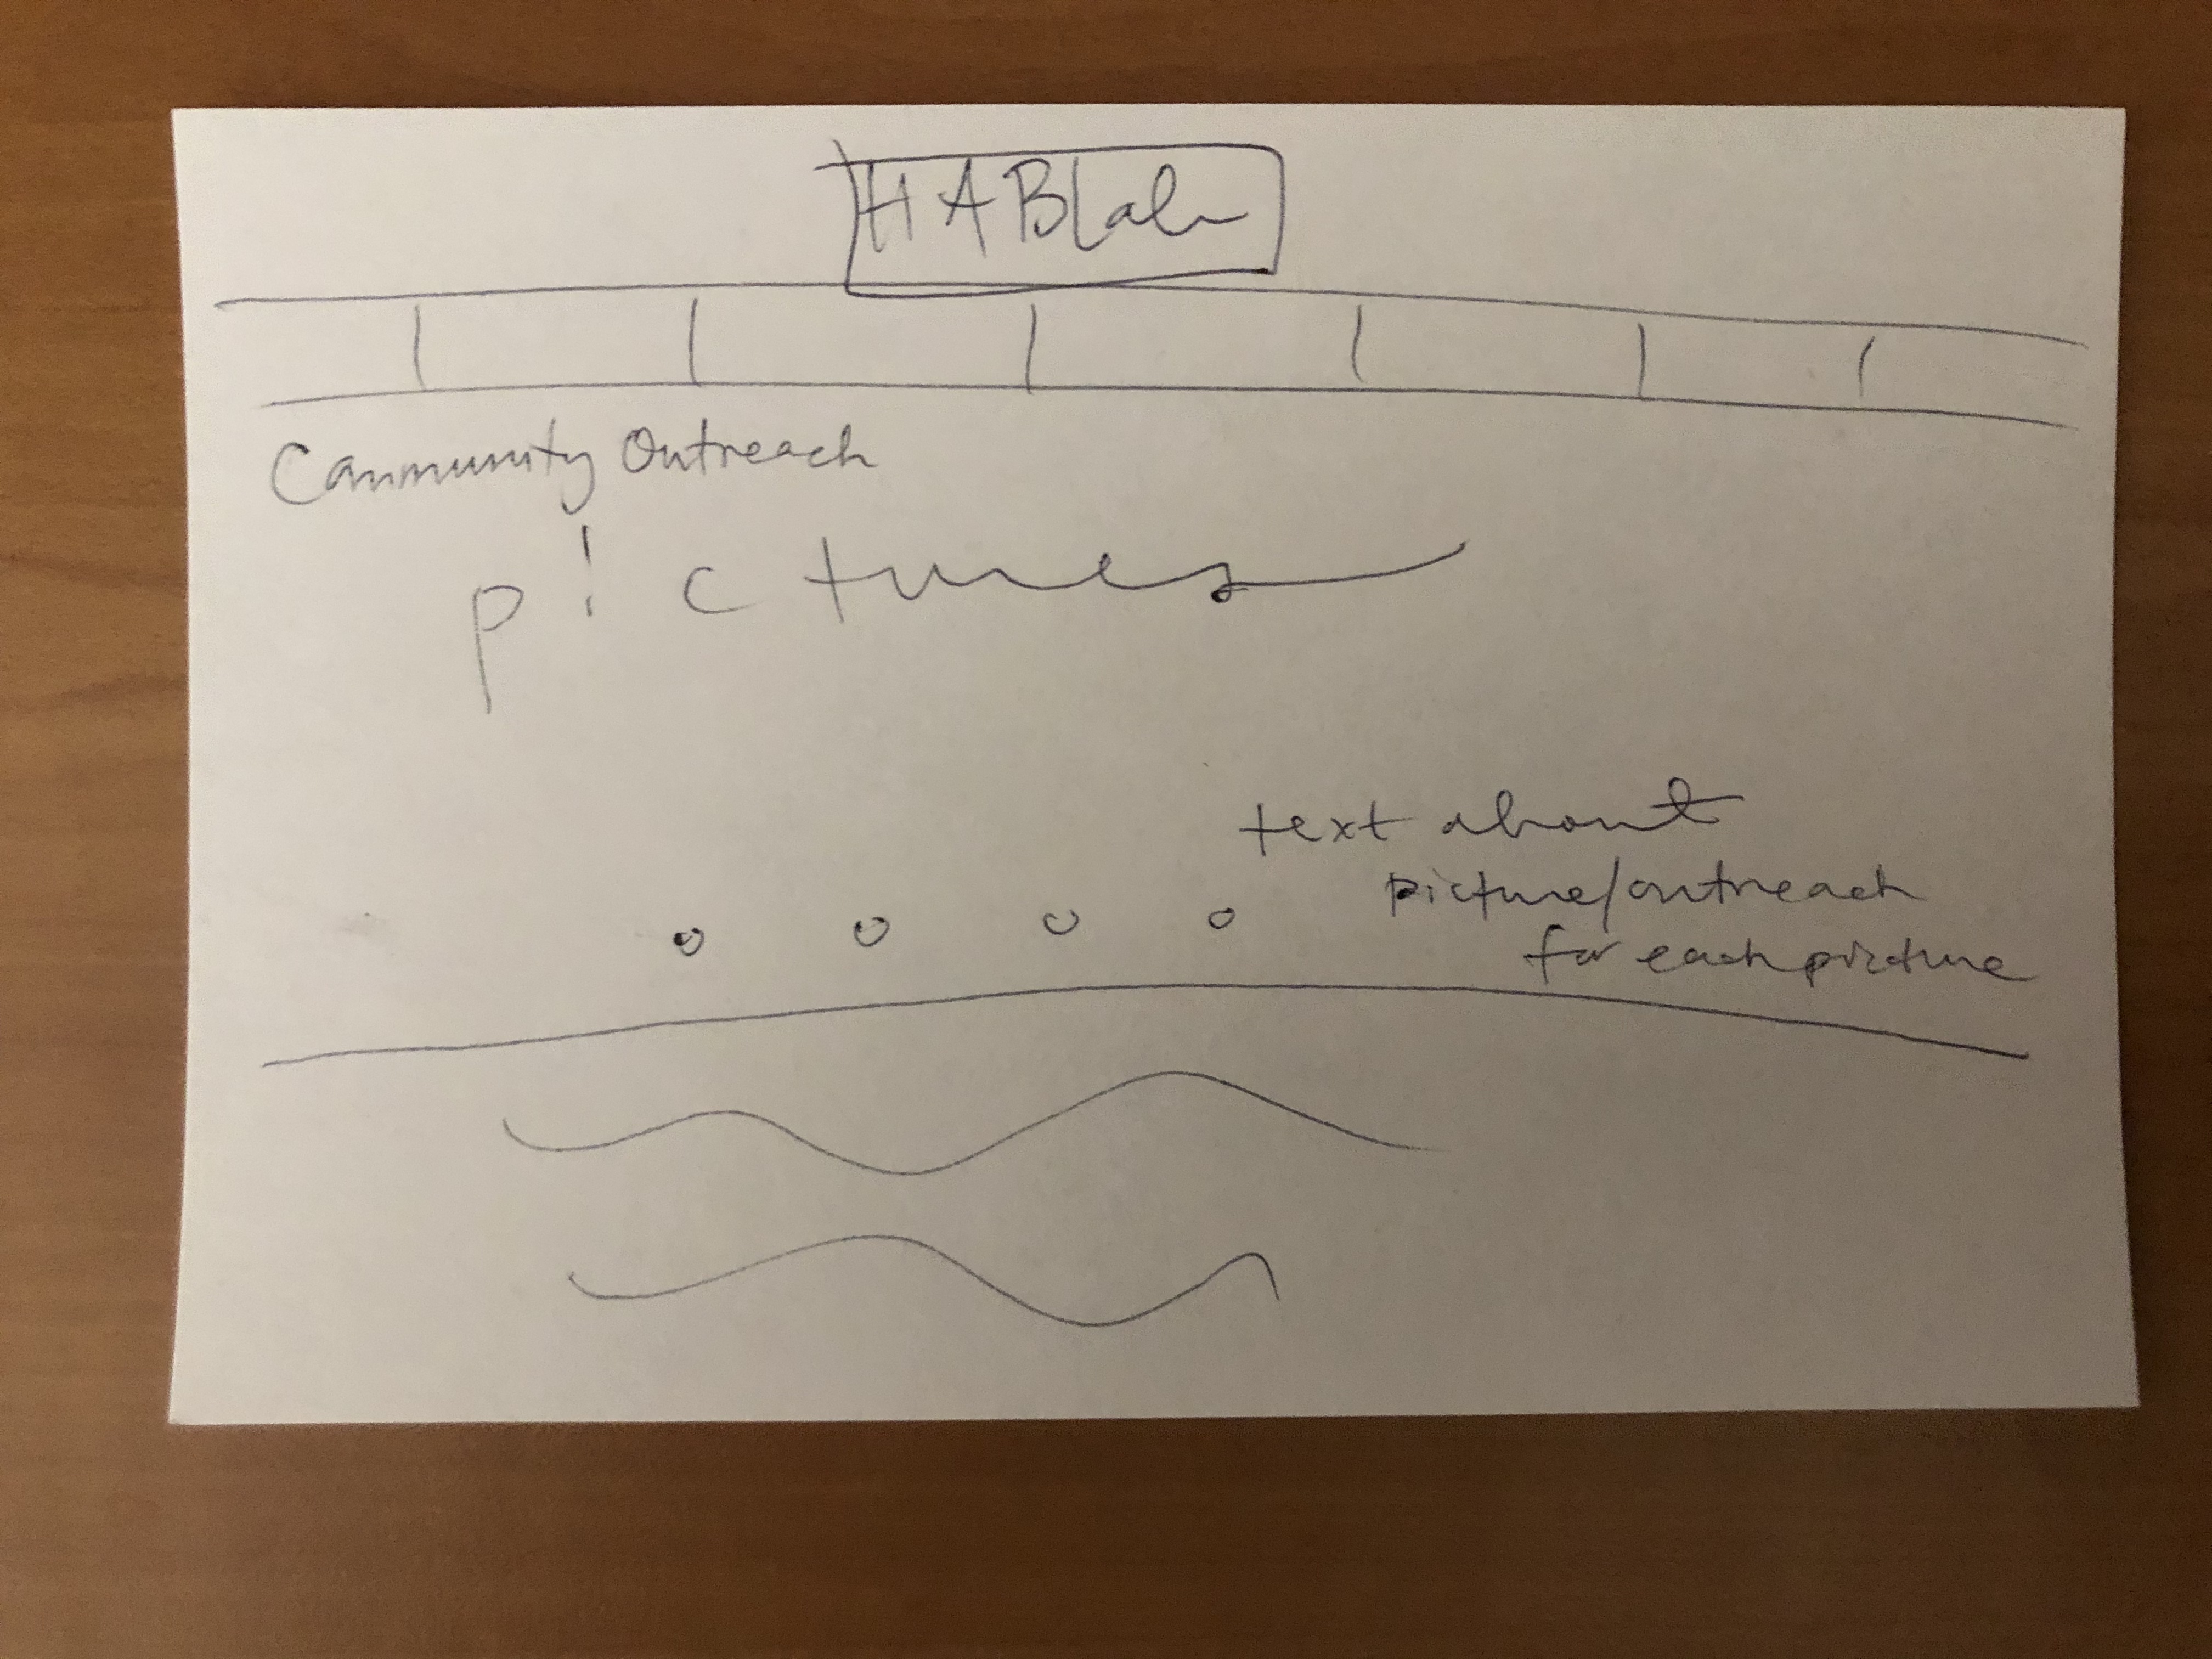 HABLab
Community Outreach
pictures
text about
picture/outreach
for each picture